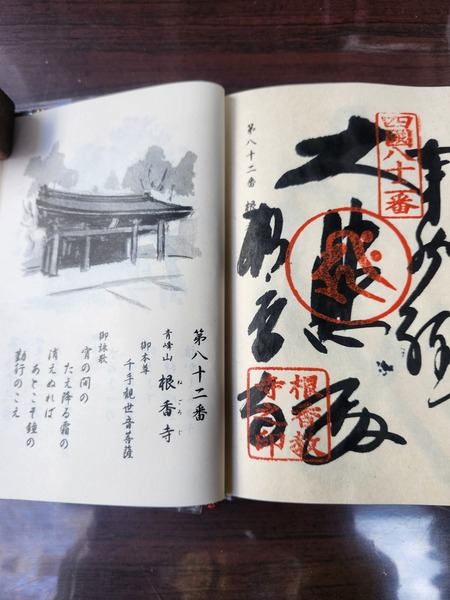 四國八十二番
大悲殿
根香寺
第八十二番
第八十二番
青峰山 根香寺
ねごろじ
御本尊
千手観世音菩薩
御詠歌
宵の間の
たえ降る霜の
消えぬれば
あとこそ鐘の
勤行のこえ